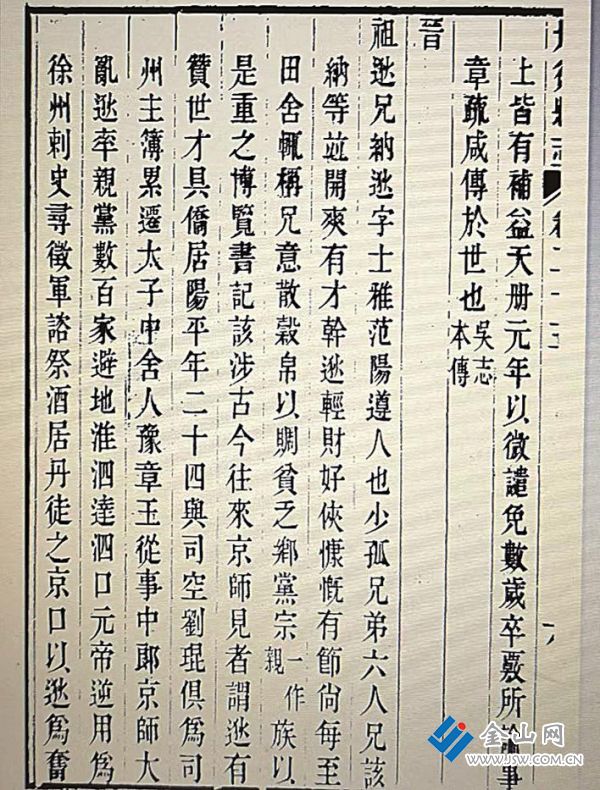 丹徒縣志
上皆有補益天册元年以微譴免數歲卒覈所論事
章疏咸傳於世也吳志本傳
晉
祖逖兄納逖字士雅范陽遵人也少孤兄弟六人兄該
納等竝開爽有才幹逖輕財好俠慷慨有節尙每至
田舍輒稱兄意散穀帛以賙貧乏鄉黨宗一作親族以
是重之博覽書記該涉古今往來京師見者謂逖有
贊世才具僑居陽平年二十四與司空劉琨俱爲司
州主簿累遷太子中舍人豫章玉從事中郎京師大
亂逖率親黨數百家避地淮泗達泗口元帝逆用爲
徐州刺史尋徵軍諮祭酒居丹徒之京口以逖爲奮
金山网
www.JSW.COM.CN